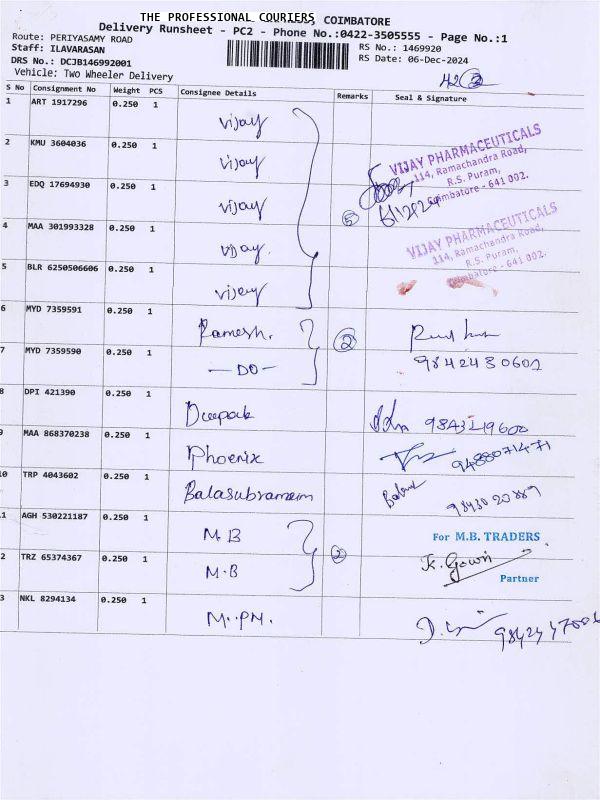 THE PROFESSIONAL COURIERS, COIMBATORE
Delivery Runsheet - PC2 - Phone No.:0422-3505555 - Page No.:1
Route: PERIYASAMY ROAD
RS No.: 1469920
Staff: ILAVARASAN
RS Date: 06-Dec-2024
DRS No.: DCJB146992001
Vehicle: Two Wheeler Delivery
S No Consignment No Weight PCS Consignee Details Remarks Seal & Signature
1 ART 1917296 0.250 1 Vijay
2 KMU 3604036 0.250 1 Vijay
VIJAY PHARMACEUTICALS
114, Ramachandra Road,
R.S. Puram,
Coimbatore - 641 002.
3 EDQ 17694930 0.250 1 Vijay
5
4 MAA 301993328 0.250 1 Vijay.
VIJAY PHARMACEUTICALS
114, Ramachandra Road,
R.S. Puram,
Coimbatore - 641 002.
5 BLR 6250506606 0.250 1 Vijay
6 MYD 7359591 0.250 1 Ramesh. 2
7 MYD 7359590 0.250 1 — DO — 9842430602
8 DPI 421390 0.250 1 Deepak
9 MAA 868370238 0.250 1 Phoenix 9488071471
10 TRP 4043602 0.250 1 Balasubramaim
11 AGH 530221187 0.250 1 M.B
For M.B. TRADERS
2 TRZ 65374367 0.250 1 M.B 2
K. Gowri
Partner
3 NKL 8294134 0.250 1 M..PM.